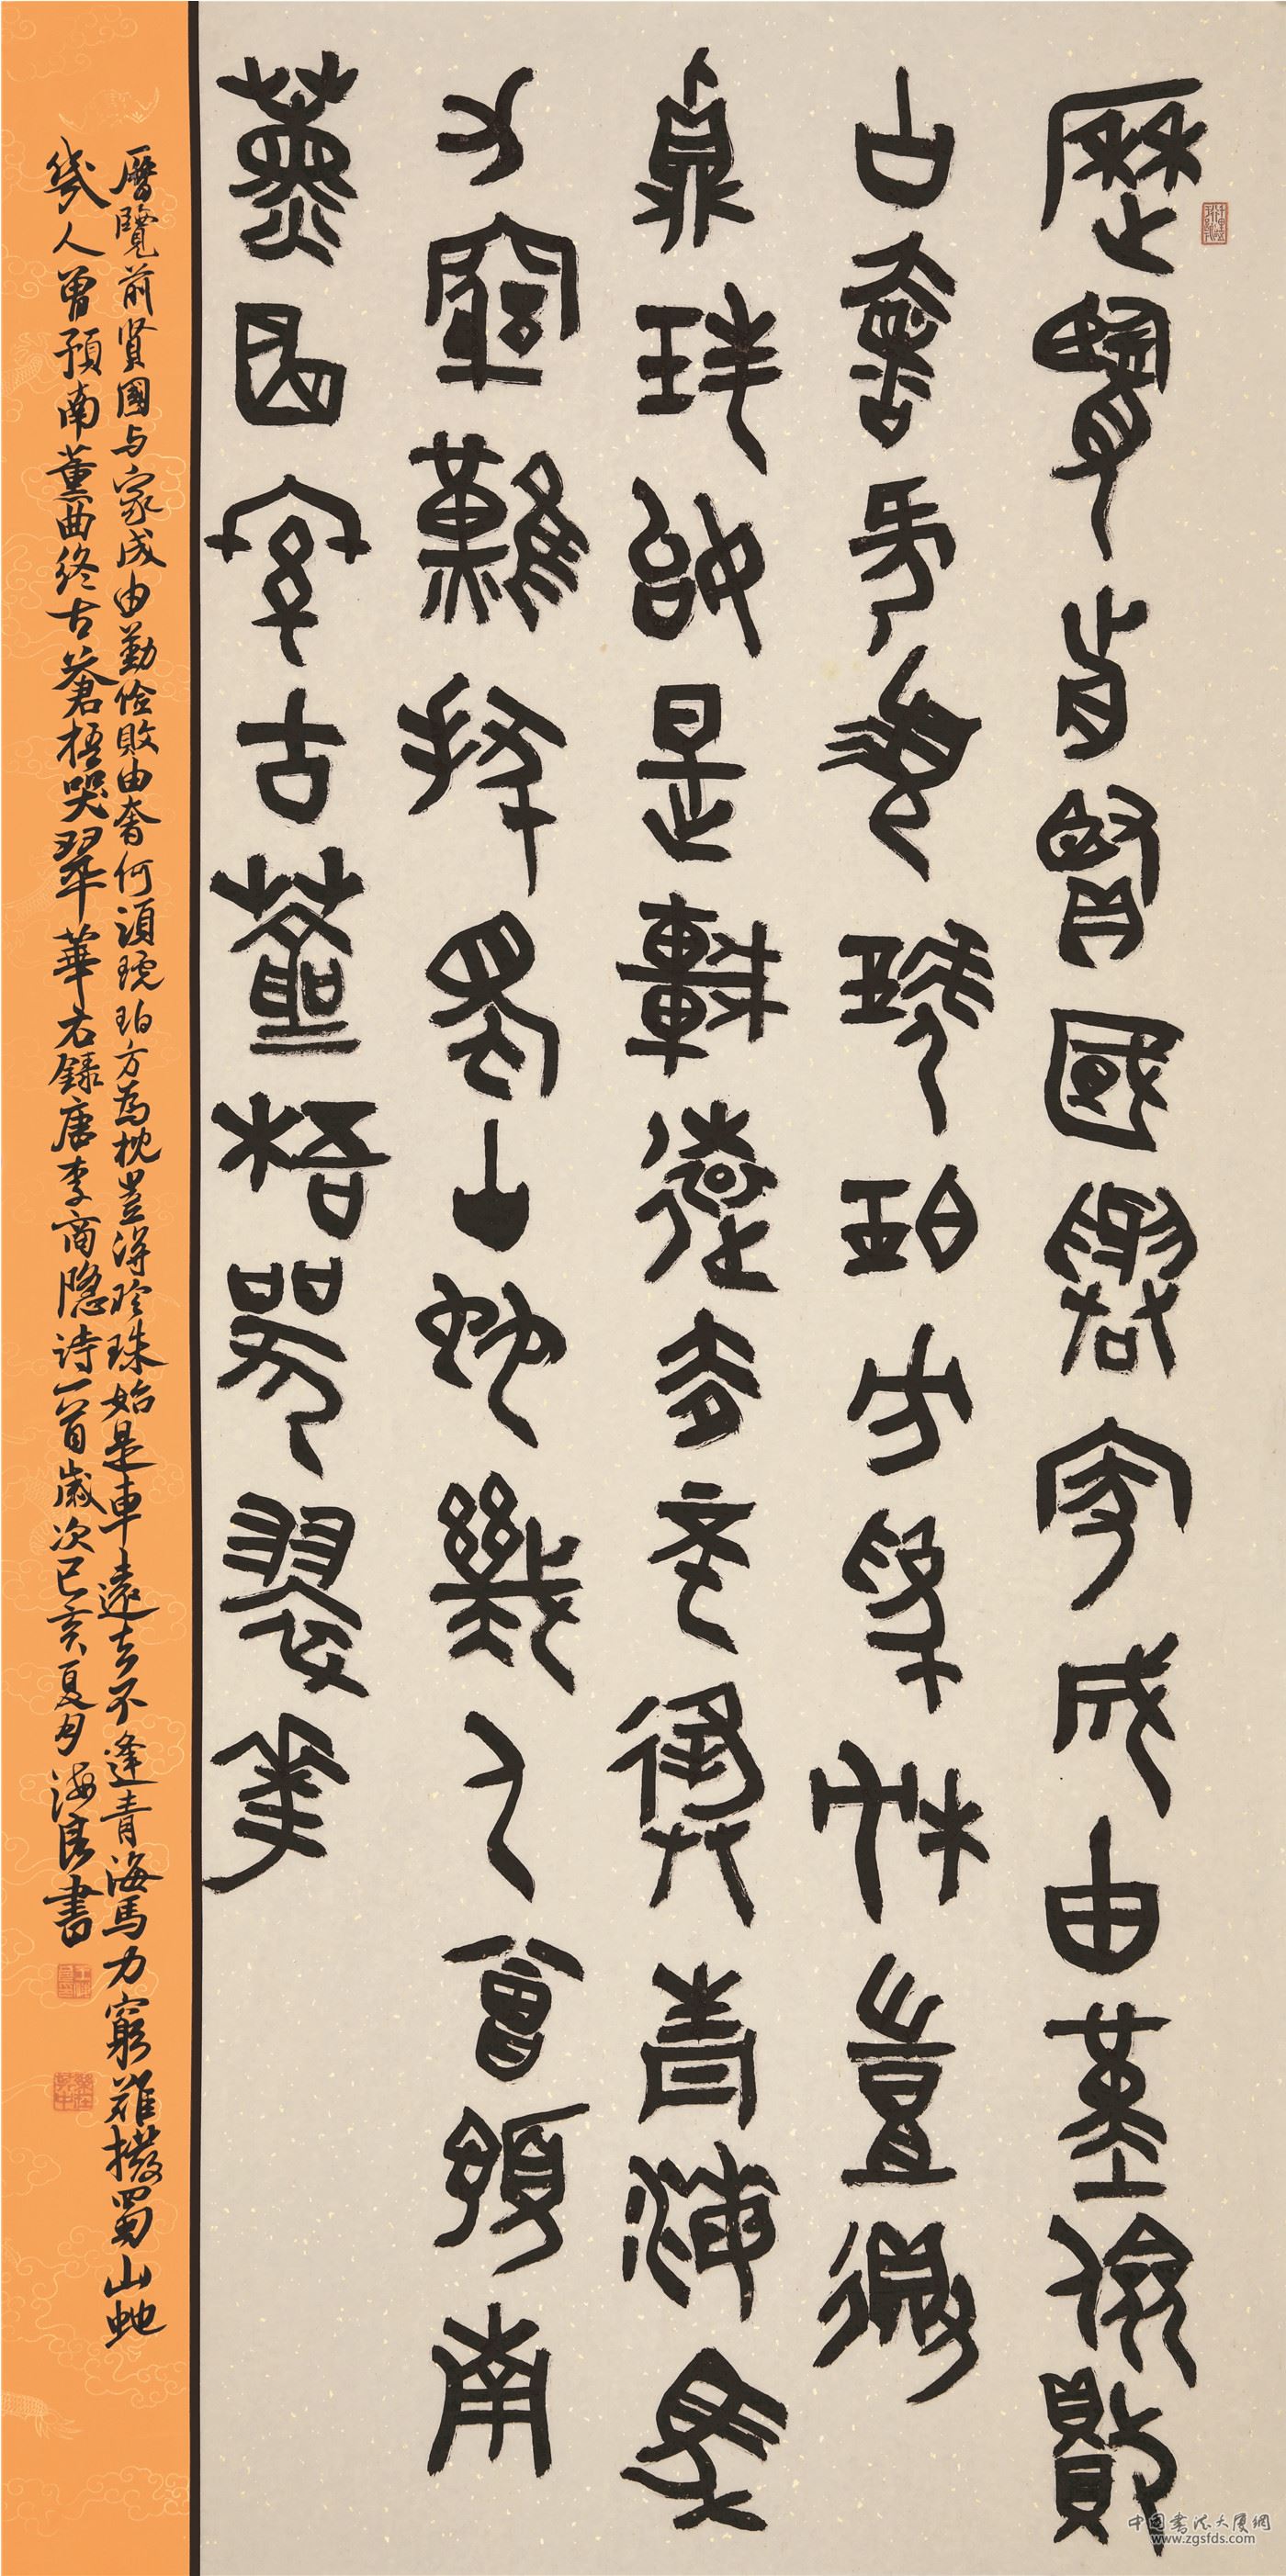 歷覽前賢國與家成由勤儉敗
由奢何須琥珀方爲枕豈得
真珠始是車遠去不逢青海馬
力窮難拔蜀山蛇幾人曾預南
薰曲終古蒼梧哭翠華
曆覽前贤國与家成由勤俭敗由奢何須琥珀方為枕豈得珍珠始是車遠去不逢青海馬力窮难撥蜀山虵
幾人曾預南薰曲終古蒼梧哭翠華右錄唐李商隐诗一首歲次己亥夏月海良書
中国書法大厦網
www.zgsfds.com